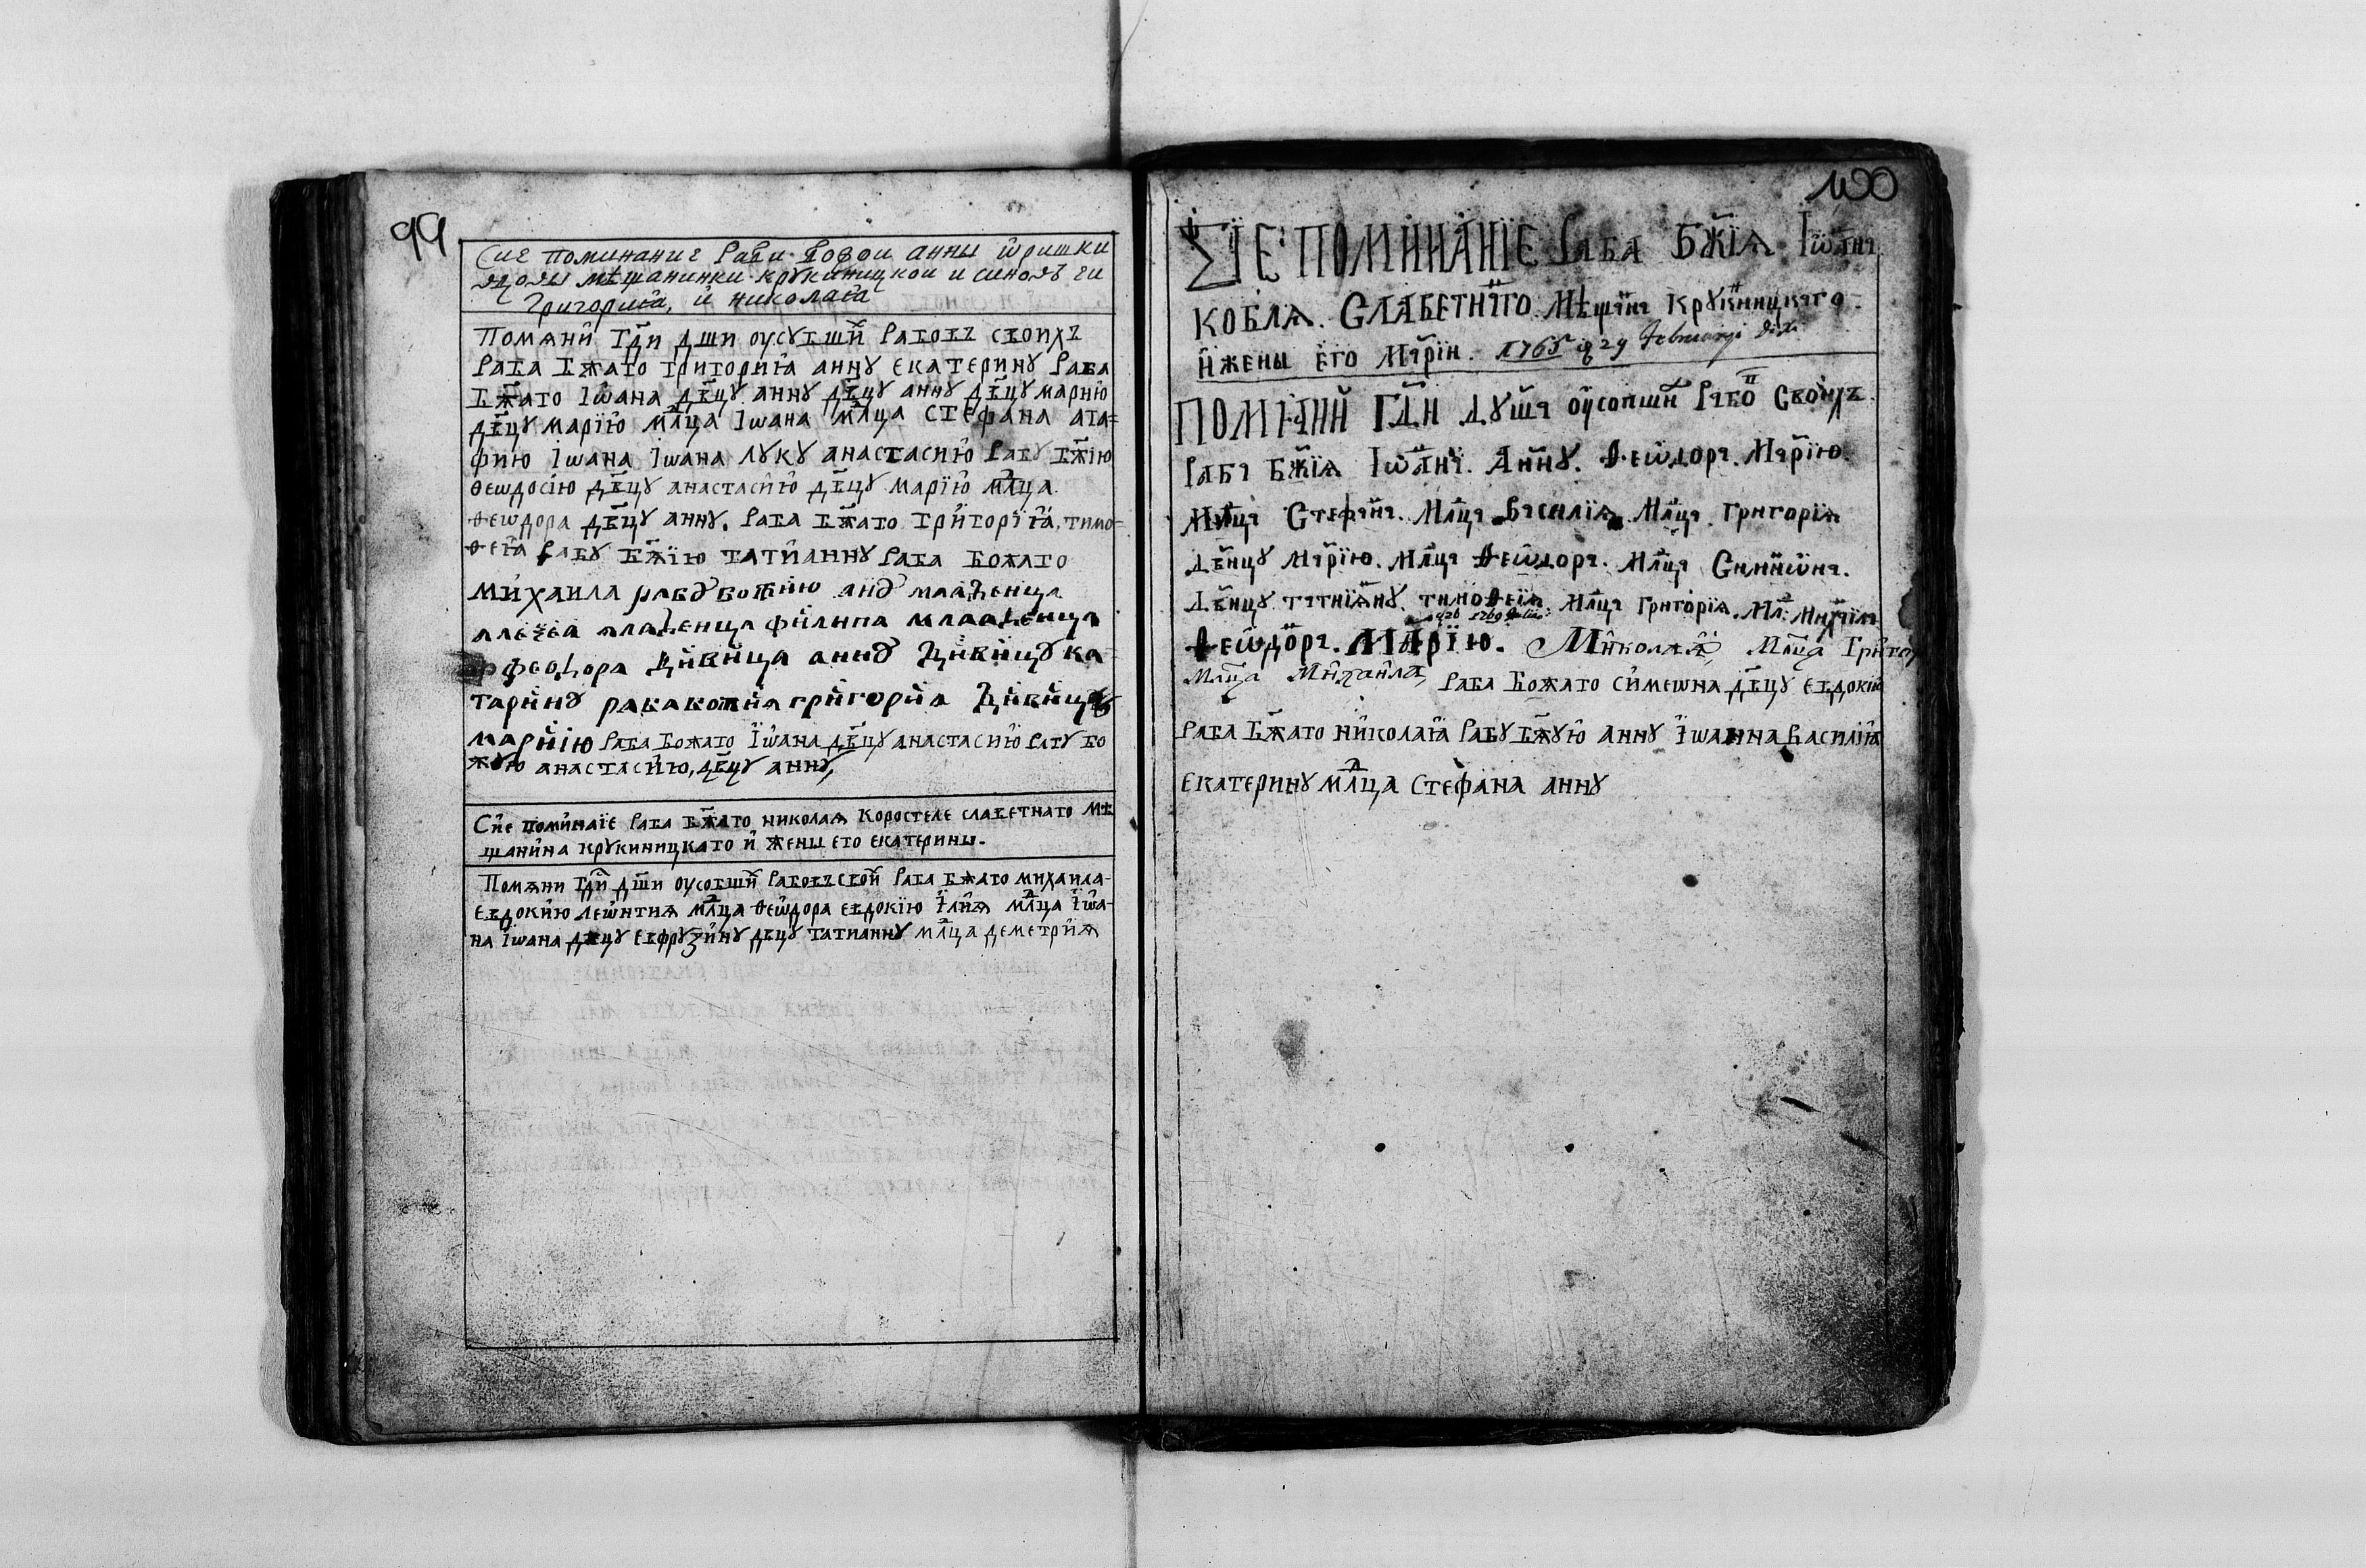 99
Сие поминание раби Божои анны
вдовы мѣщанинки крукиницкои и синовъ еи
Григориꙗ, и николаꙗ
Помѧни Гди дши оусѹвши рабовъ своихъ
Раба Бжаго григориꙗ аннѹ екатеринѹ Раба
Бжаго Іѡана двцѹ аннѹ двцѹ аннѹ двцѹ марию
двцѹ марїю млца Іѡана млца стефана ага=
фию Іѡана Іѡана лѹкѹ анастасию Рабѹ Бжїю
Ѳеѡдосію двцѹ анастасию двцѹ марїю млца
Ѳеѡдора двцѹ аннѹ. Раба Бжаго григорїꙗ, тимо=
Ѳеꙗ Рабѹ Бжїю татианнѹ Раба Божаго
михаила рабѹ божию анѹ младенца
алеѯеа младенца филипа младенца
феодора дивица аннѹ дивицѹ ка=
таринѹ раба божия григория дивицѹ
марию Раба Божаго Їѡана двцѹ анастасию рабѹ бо
жѹю анастасию, двцѹ аннѹ,
Сие поминаїе Раба Бжаго николаѧ Коростеле славетнаго мѣ
щанина крѹкиницкаго и жены его екатерины.
Помѧни Гди дши оусобши рабовъ свои Раба Бжаго михаила-
евдокию леѡнтиѧ млца Ѳеѡдора евдокїю Їлиѧ млца Їѡа-
на Їѡана двцѹ евфрѹзинѹ двцѹ татианнѹ млца деметриѧ
100
Сїе поминанїе Раба Бжїѧ Іѡана
Коблѧ. Славетнаго Мѣщана Крѹкиницкаго.
Й жены его Марїи. 1765 29 Februarij
Помѧни Гди Дѹша оусопши Рабо Своихъ
Раба Бжїѧ Іѡана. Аннѹ. Ѳеѡдора. Марїю.
Млца Стефана. Млца Василїѧ. Млца Григорїѧ
Двицѹ Марїю. Млца Ѳеѡдора. Млца Симиѡна.
Двицѹ татиїанѹ. тимоѲеїѧ. Млца Григорїѧ. Мл: Михаїла
Ѳеѡдора. Марїю. Миколаꙗ, Млца Григо
Млца Михаила, Раба Божаго симеѡна двцѹ евдокию
Раба Бжаго николаꙗ Рабѹ Бжѹю аннѹ Їѡанна Василиꙗ
екатеринѹ млца Стефана аннѹ